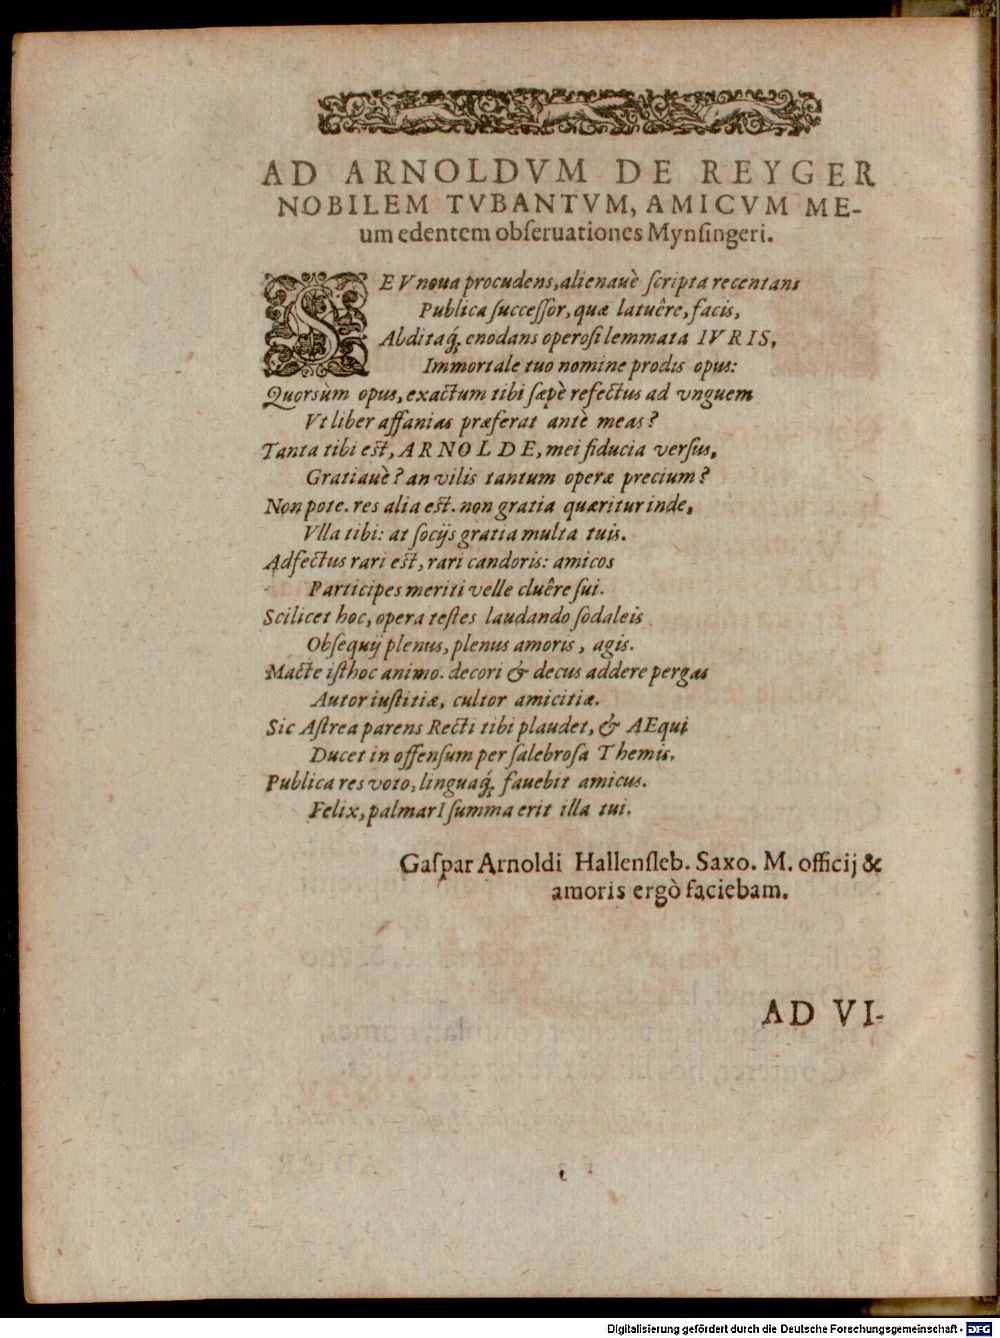 AD ARNOLDVM DE REYGER
NOBILEM TVBANTVM, AMICVM ME-
um edentem obſeruationes Mynſingeri.
SEV noua procudens, alienauè ſcripta recentans
Publica ſucceſſor, quæ latuêre, facis,
Abditaq́; enodans operoſi lemmata IVRIS,
Immortale tuo nomine prodis opus:
Quorsùm opus, exactum tibi ſæpè refectus ad vnguem
Vt liber affanias præferat antè meas?
Tanta tibi eſt, ARNOLDE, mei fiducia verſus,
Gratiauè? an vilis tantum operæ precium?
Non pote. res alia eſt. non gratia quæritur inde,
Vlla tibi: at ſocijs gratia multa tuis.
Adfectus rari eſt, rari candoris: amicos
Participes meriti velle cluêre ſui.
Scilicet hoc, opera teſtes laudando ſodaleis
Obſequij plenus, plenus amoris, agis.
Macte iſthoc animo. decori & decus addere pergas
Autor iuſtitiæ, cultor amicitiæ.
Sic Aſtrea parens Recti tibi plaudet, & AEqui
Ducet in offenſum per ſalebroſa Themis.
Publica res voto, linguaq́; fauebit amicus.
Felix, palmarI ſumma erit illa tui.
Gaſpar Arnoldi Hallenſleb. Saxo. M. officij &
amoris ergò faciebam.
AD VI-
Digitalisierung gefördert durch die Deutsche Forschungsgemeinschaft - DFG